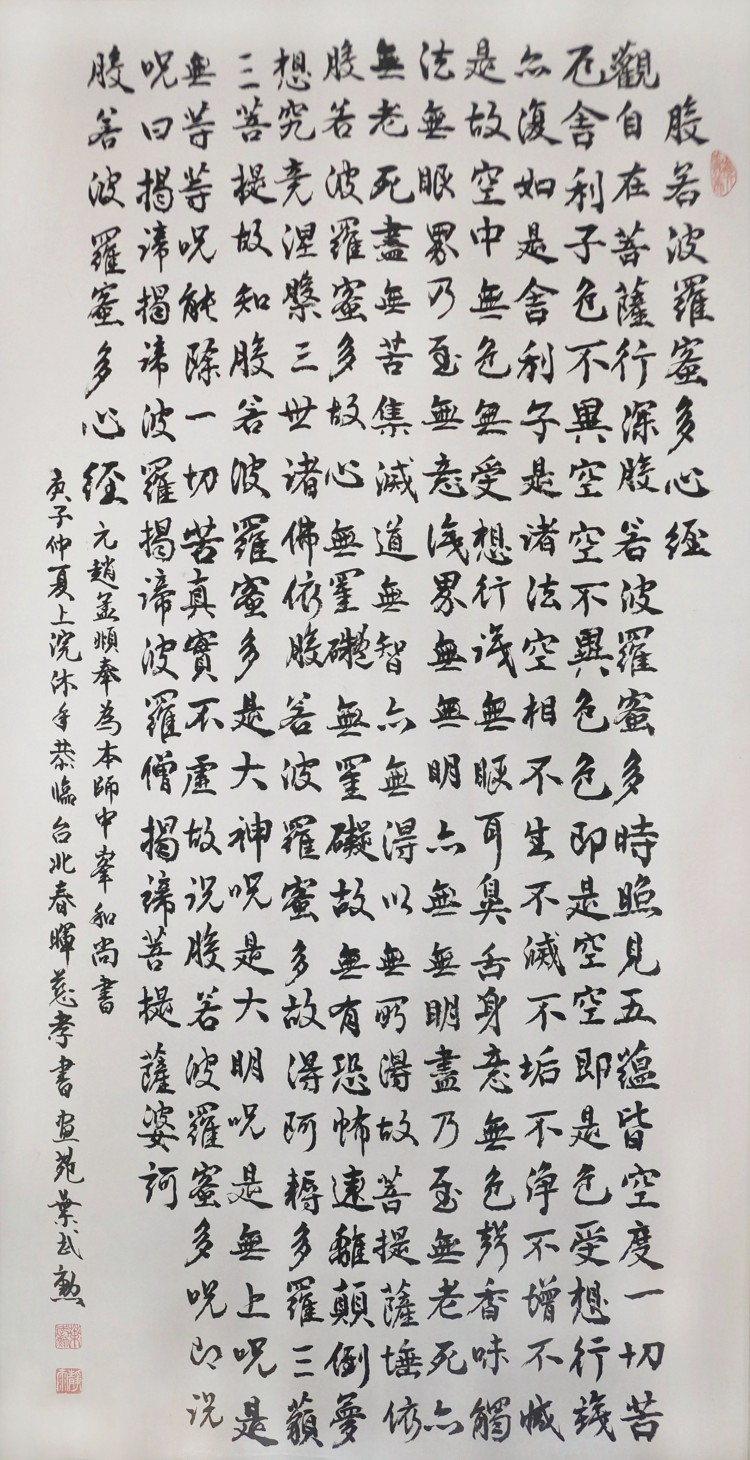 般若波羅蜜多心經
觀自在菩薩行深般若波羅蜜多時照見五蘊皆空度一切苦
厄舍利子色不異空空不異色色即是空空即是色受想行識
亦復如是舍利子是諸法空相不生不滅不垢不淨不增不減
是故空中無色無受想行識無眼耳鼻舌身意無色聲香味觸
法無眼界乃至無意識界無無明亦無無明盡乃至無老死亦
無老死盡無苦集滅道無智亦無得以無所得故菩提薩埵依
般若波羅蜜多故心無罣礙無罣礙故無有恐怖遠離顛倒夢
想究竟涅槃三世諸佛依般若波羅蜜多故得阿耨多羅三藐
三菩提故知般若波羅蜜多是大神呪是大明呪是無上呪是
無等等呪能除一切苦真實不虛故說般若波羅蜜多呪即說
呪曰揭諦揭諦波羅揭諦波羅僧揭諦菩提薩婆訶
般若波羅蜜多心經 元趙孟頫奉為本師中峯和尚書
庚子仲夏上浣沐手恭臨台北春暉慈孝書畫苑葉武勲